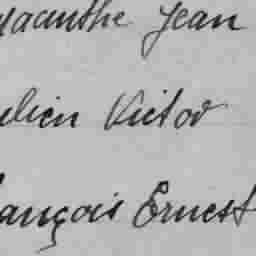 yacinthe Jean
ulien Victor
ançois Ernest